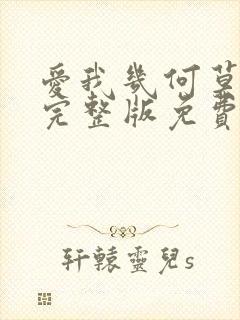 愛我幾何草
完整版免費
軒轅靈兒s